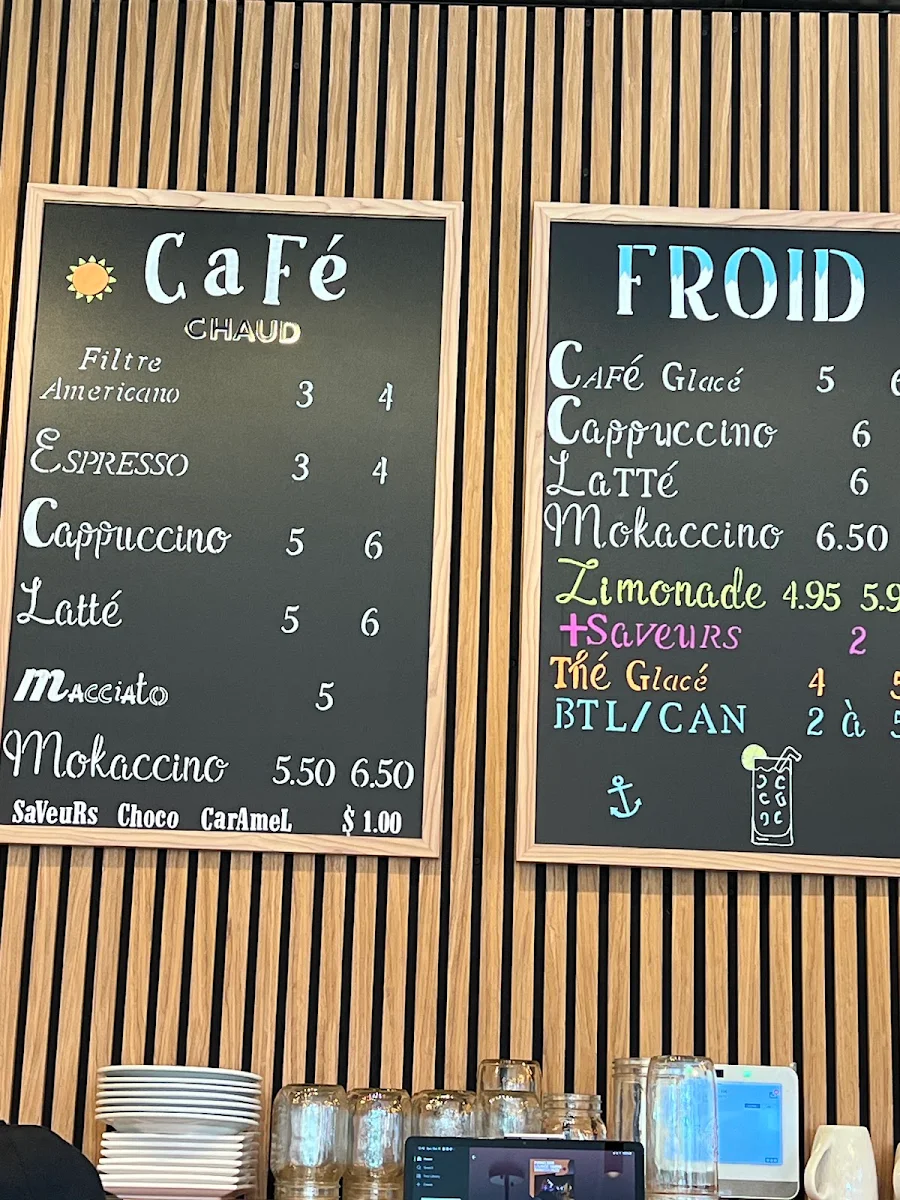 CaFé
CHAUD
Filtre
Americano 3 4
ESPRESSO 3 4
Cappuccino 5 6
Latté 5 6
macciato 5
Mokaccino 5.50 6.50
SaVeuRs Choco CarAmeL $ 1.00
FROID
CAFé Glacé 5
Cappuccino 6
LaTTé 6
Mokaccino 6.50
Limonade 4.95 5.9
+SaveuRs 2
Thé Glacé 4
BTL/CAN 2 à